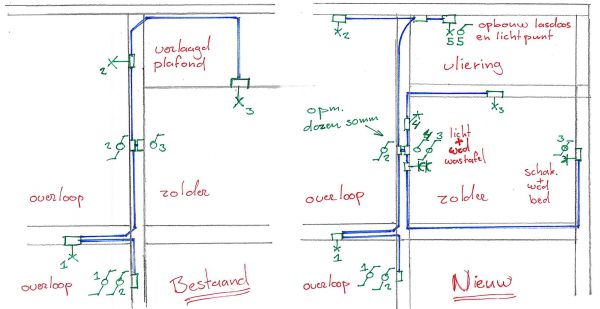 verlaagd
plafond
2
3
2
3
overloop
zolder
1
overloop
1
2
Bestaand
2
5 5
opbouw lasdoos
en lichtpunt
vliering
3
opm.
dozen 50mm
4
4 3
licht
+
wcd
wastafel
2
3
schak.
+
wcd
bed
overloop
zolder
1
overloop
1
2
Nieuw